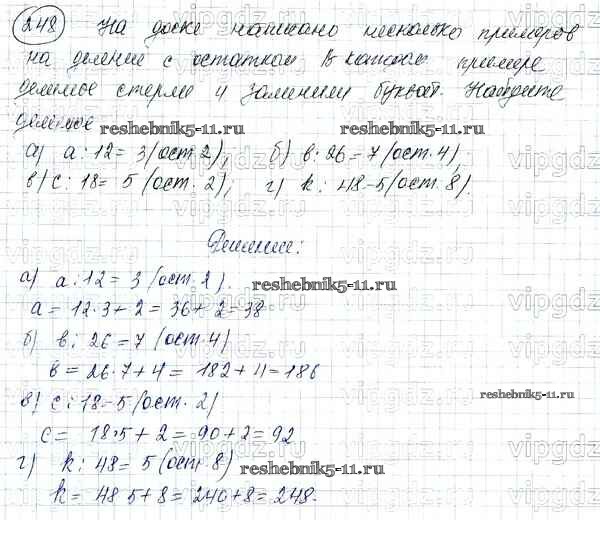 248 На доске написано несколько примеров
на деление с остатком В каждом примере
делимое стерли и заменили буквой. Найдите
делимое
reshebnik5-11.ru reshebnik5-11.ru
а) a:12= 3(ост.2), б) в:26=7(ост.4),
в) с:18= 5 (ост. 2), г) k: 48-5(ост. 8).
Решение:
а) a:12= 3 (ост.2). reshebnik5-11.ru
a= 12·3+2 = 36+2=38
б) в: 26=7 (ост.4)
в = 26·7+4= 182+4=186
в) с:18-5(ост. 2) reshebnik5-11.ru
с= 18·5+2=90+2=92
г) k: 48= 5(ост. 8) reshebnik5-11.ru
k= 48 5+8=240+8=248.
vipgdz.ru